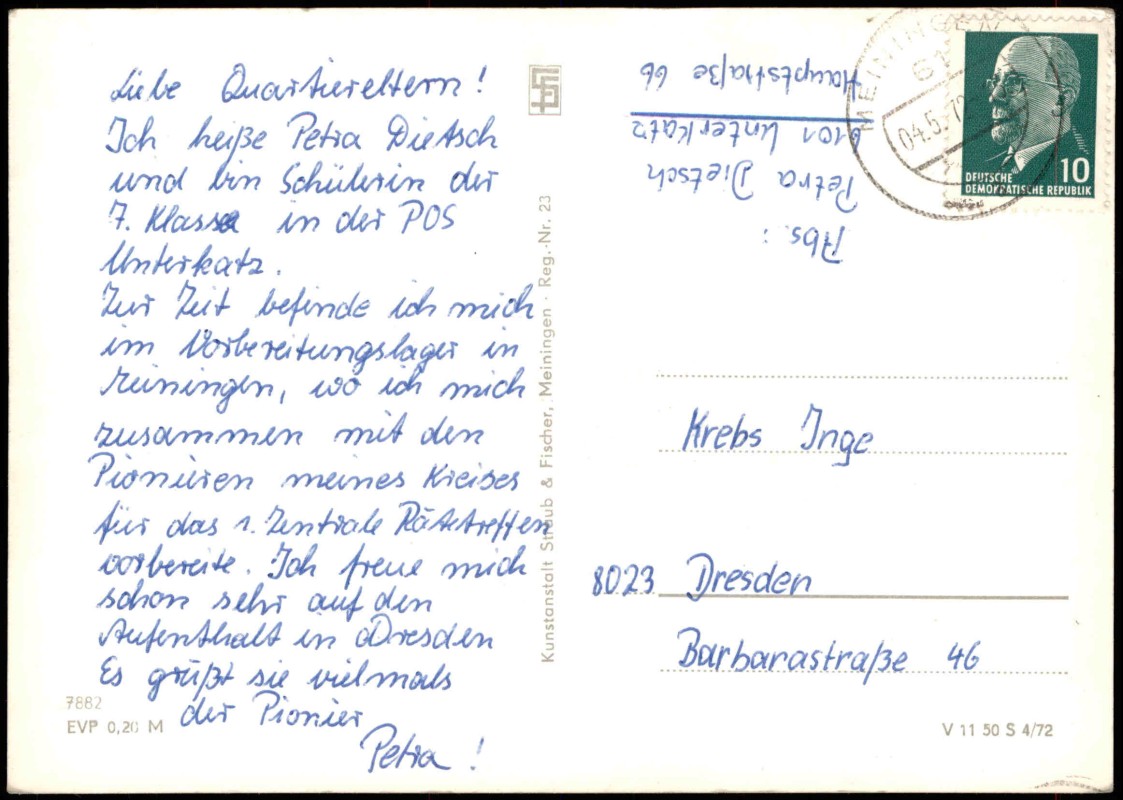 Liebe Quartiereltern!
Ich heiße Petra Dietsch
und bin Schülerin der
7. Klasse in der POS
Unterkatz.
Zur Zeit befinde ich mich
im Vorbereitungslager in
Meiningen, wo ich mich
zusammen mit den
Pionieren meines Kreises
für das 1. Zentrale Rätetreffen
vorbereite. Ich freue mich
schon sehr auf den
Aufenthalt in Dresden
Es grüßt sie vielmals
der Pionier
Petra!
7882
EVP 0,20 M
Kunstanstalt Straub & Fischer, Meiningen · Reg.-Nr. 23
Abs.:
Petra Dietsch
6101 Unterkatz
Hauptstraße 66
MEININGEN
61
04.5.72
10
DEUTSCHE
DEMOKRATISCHE REPUBLIK
Krebs Inge
8023 Dresden
Barbarastraße 46
V 11 50 S 4/72